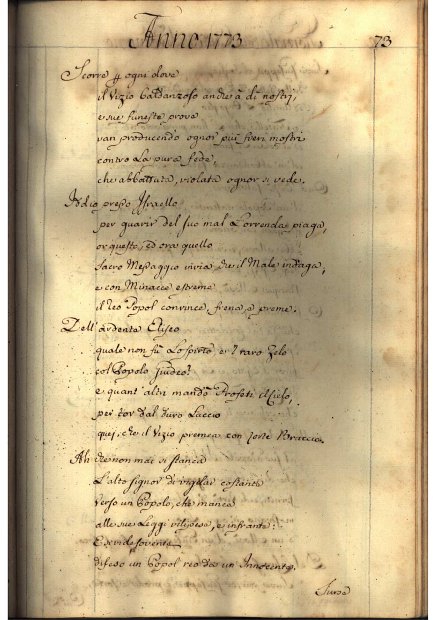 Anno 1773
73
Scorre p ogni dove
il Vizio baldanzoso andrea di nostri,
e sue funeste prove
van producendo ognor più fieri mostri
contro La pura fede,
che abbattuta, violata ognor si vede.
Iddio presso Israello
per guarir del suo mal L'orrenda piaga,
or questo, ed ora quello
Sacro Messaggio invia che il Male indaga,
e con Minacce estreme
il reo Popol convince, frena, e preme.
Dell'ardente Eliseo
quale non fù Lo spirto e'l raro Zelo
col Popolo Judeo!
e quant'altri mandò Profeti il Cielo,
per tor dal duro Laccio
quei, che il Vizio premea con forte Braccio.
Ah che non mai si stanca
L'alto Signor di vigilar costante
Verso un Popolo, che manca
alle sue Leggi, e infrante:
E si vide sovente
difeso un Popol reo da un Innocente.